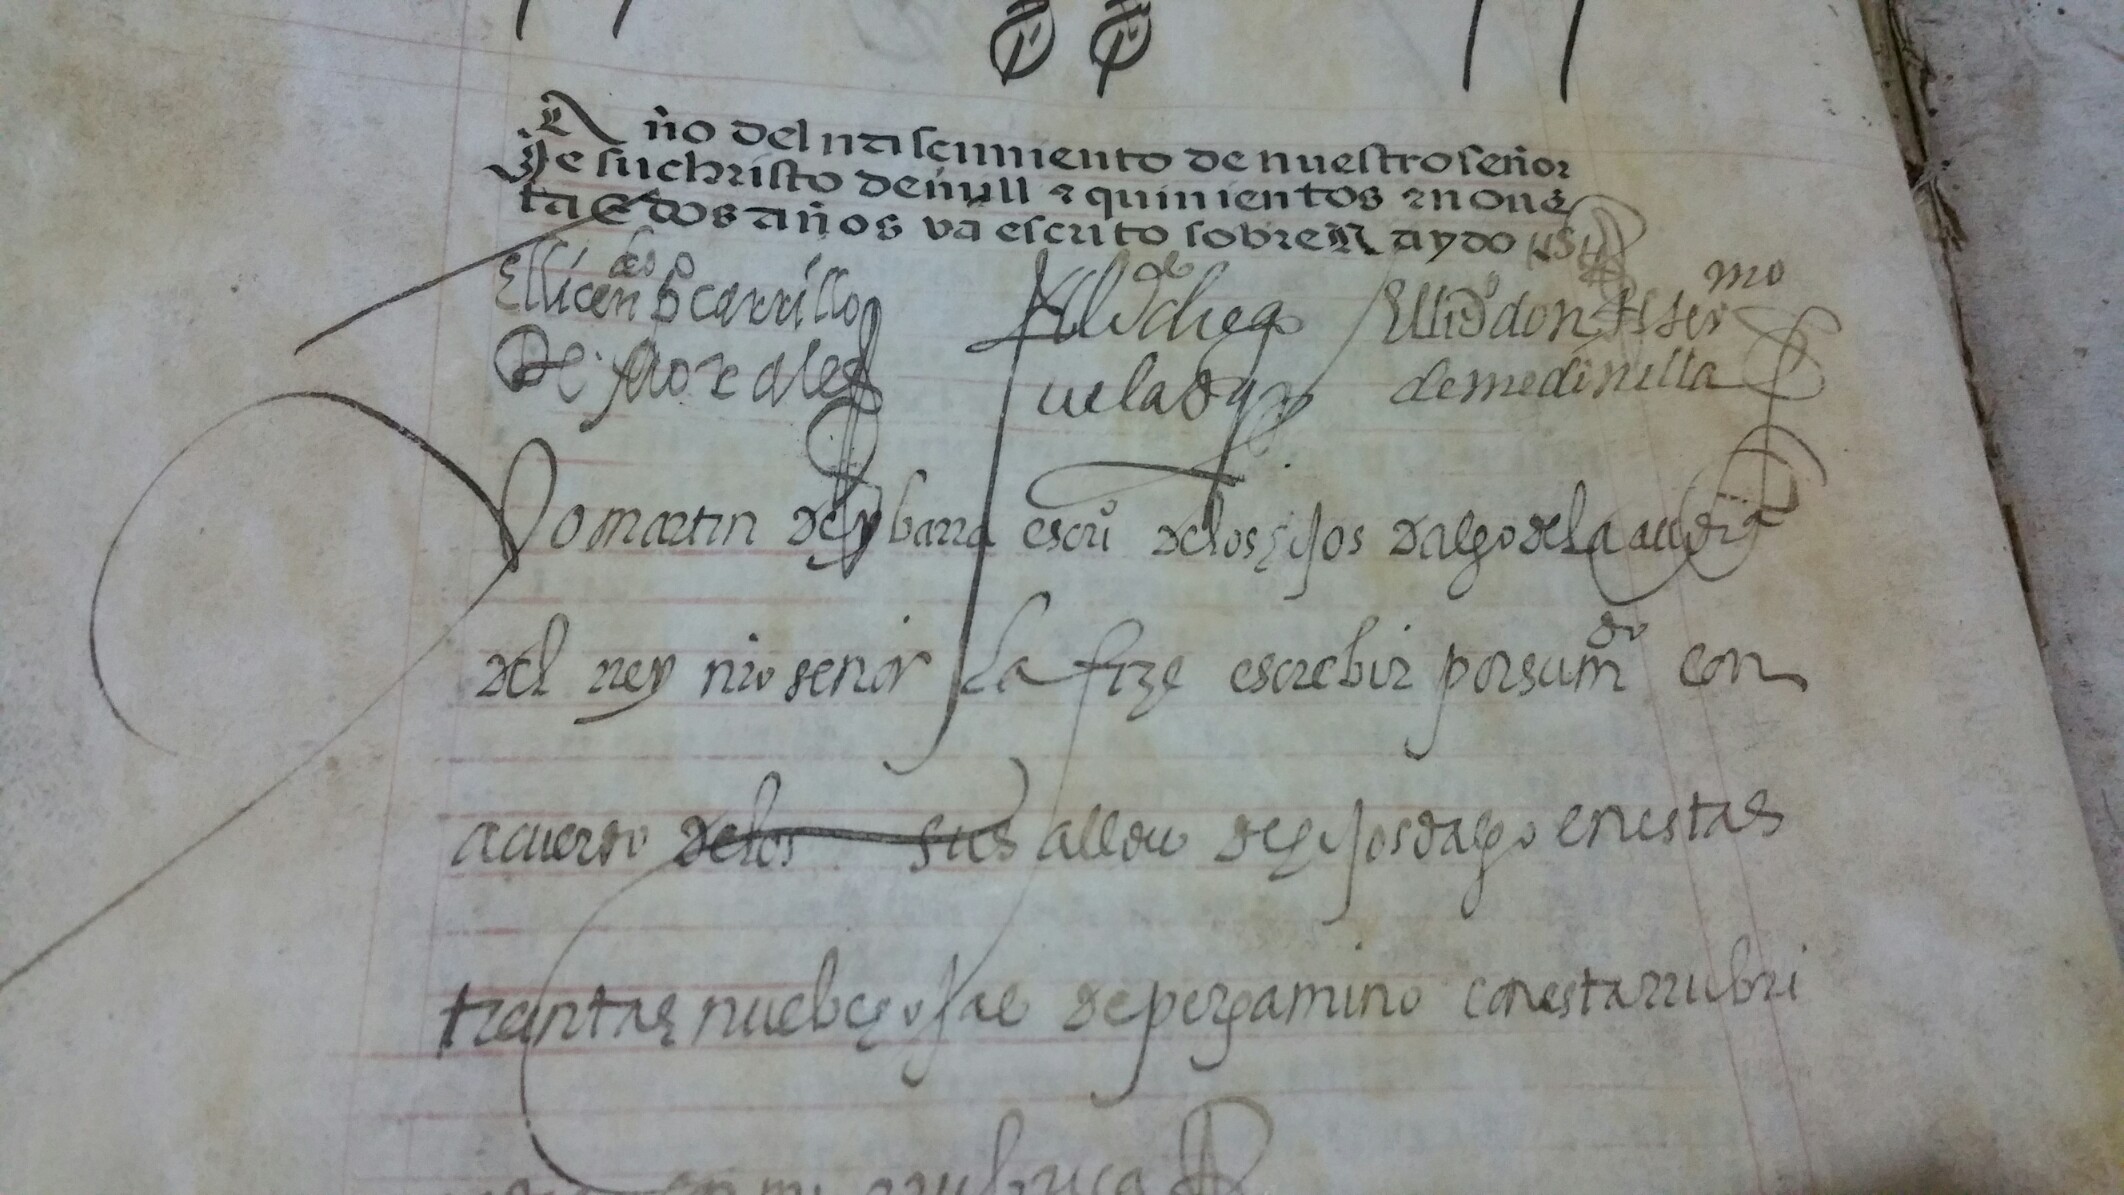 Año del nascimiento de nuestro señor
Jesuchristo de mill e quinientos e noue
ta e dos años va escrito sobre R aydo
El licendo p carrillo
de morales
El ldo diego
uela
El lido don
mo
de medinilla
Yo martin de ybarra escriuo delos hijos dalgo dela audia
del rrey nro señor la fize escrebir por su mdo con
acuerdo delos sus alldes de hijosdalgo en estas
treintas nuebe ojas de pergamino con esta rrubri
en mi rrubrica